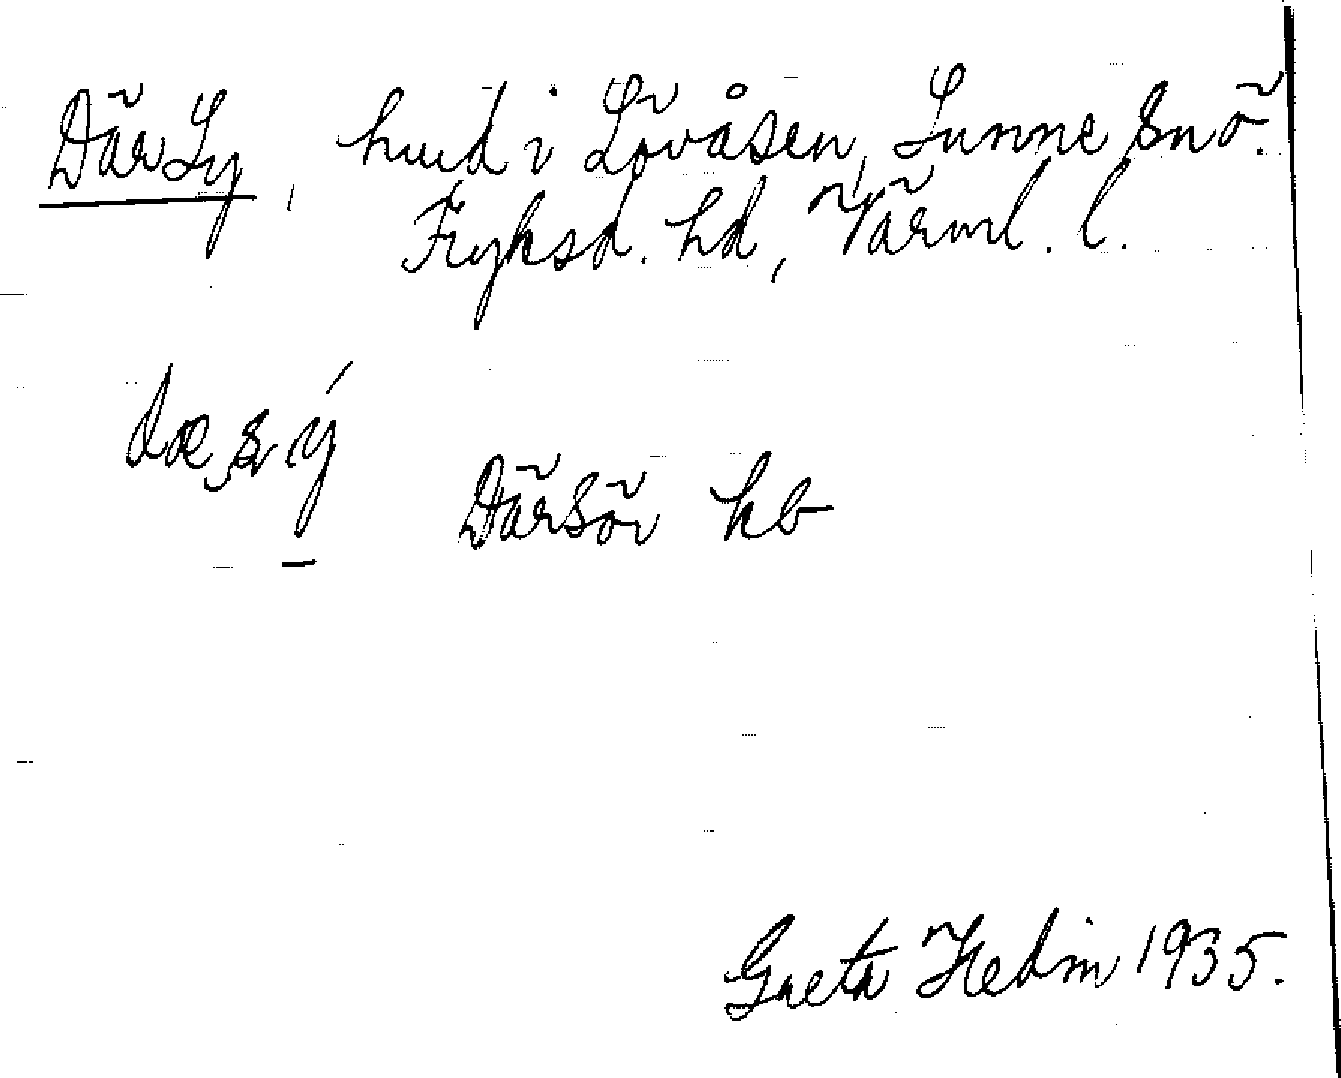 Där Sy, hmd i Lövåsen, Sunne snö.
Fryksd. hd, Värml. l.
dæ, s, ý
Därsör kb
Greta Hedin 1935.